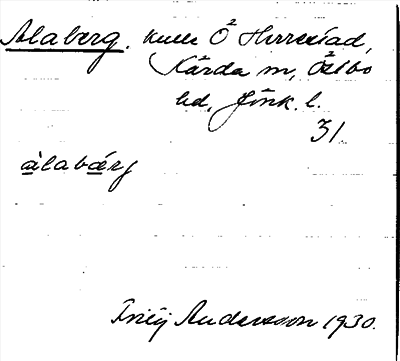 Alaberg. kulle Ö Herrestad,
Kärda sn, Östbo
hd, Jönk. l.
31.
àlabárj
Andersson 1930.